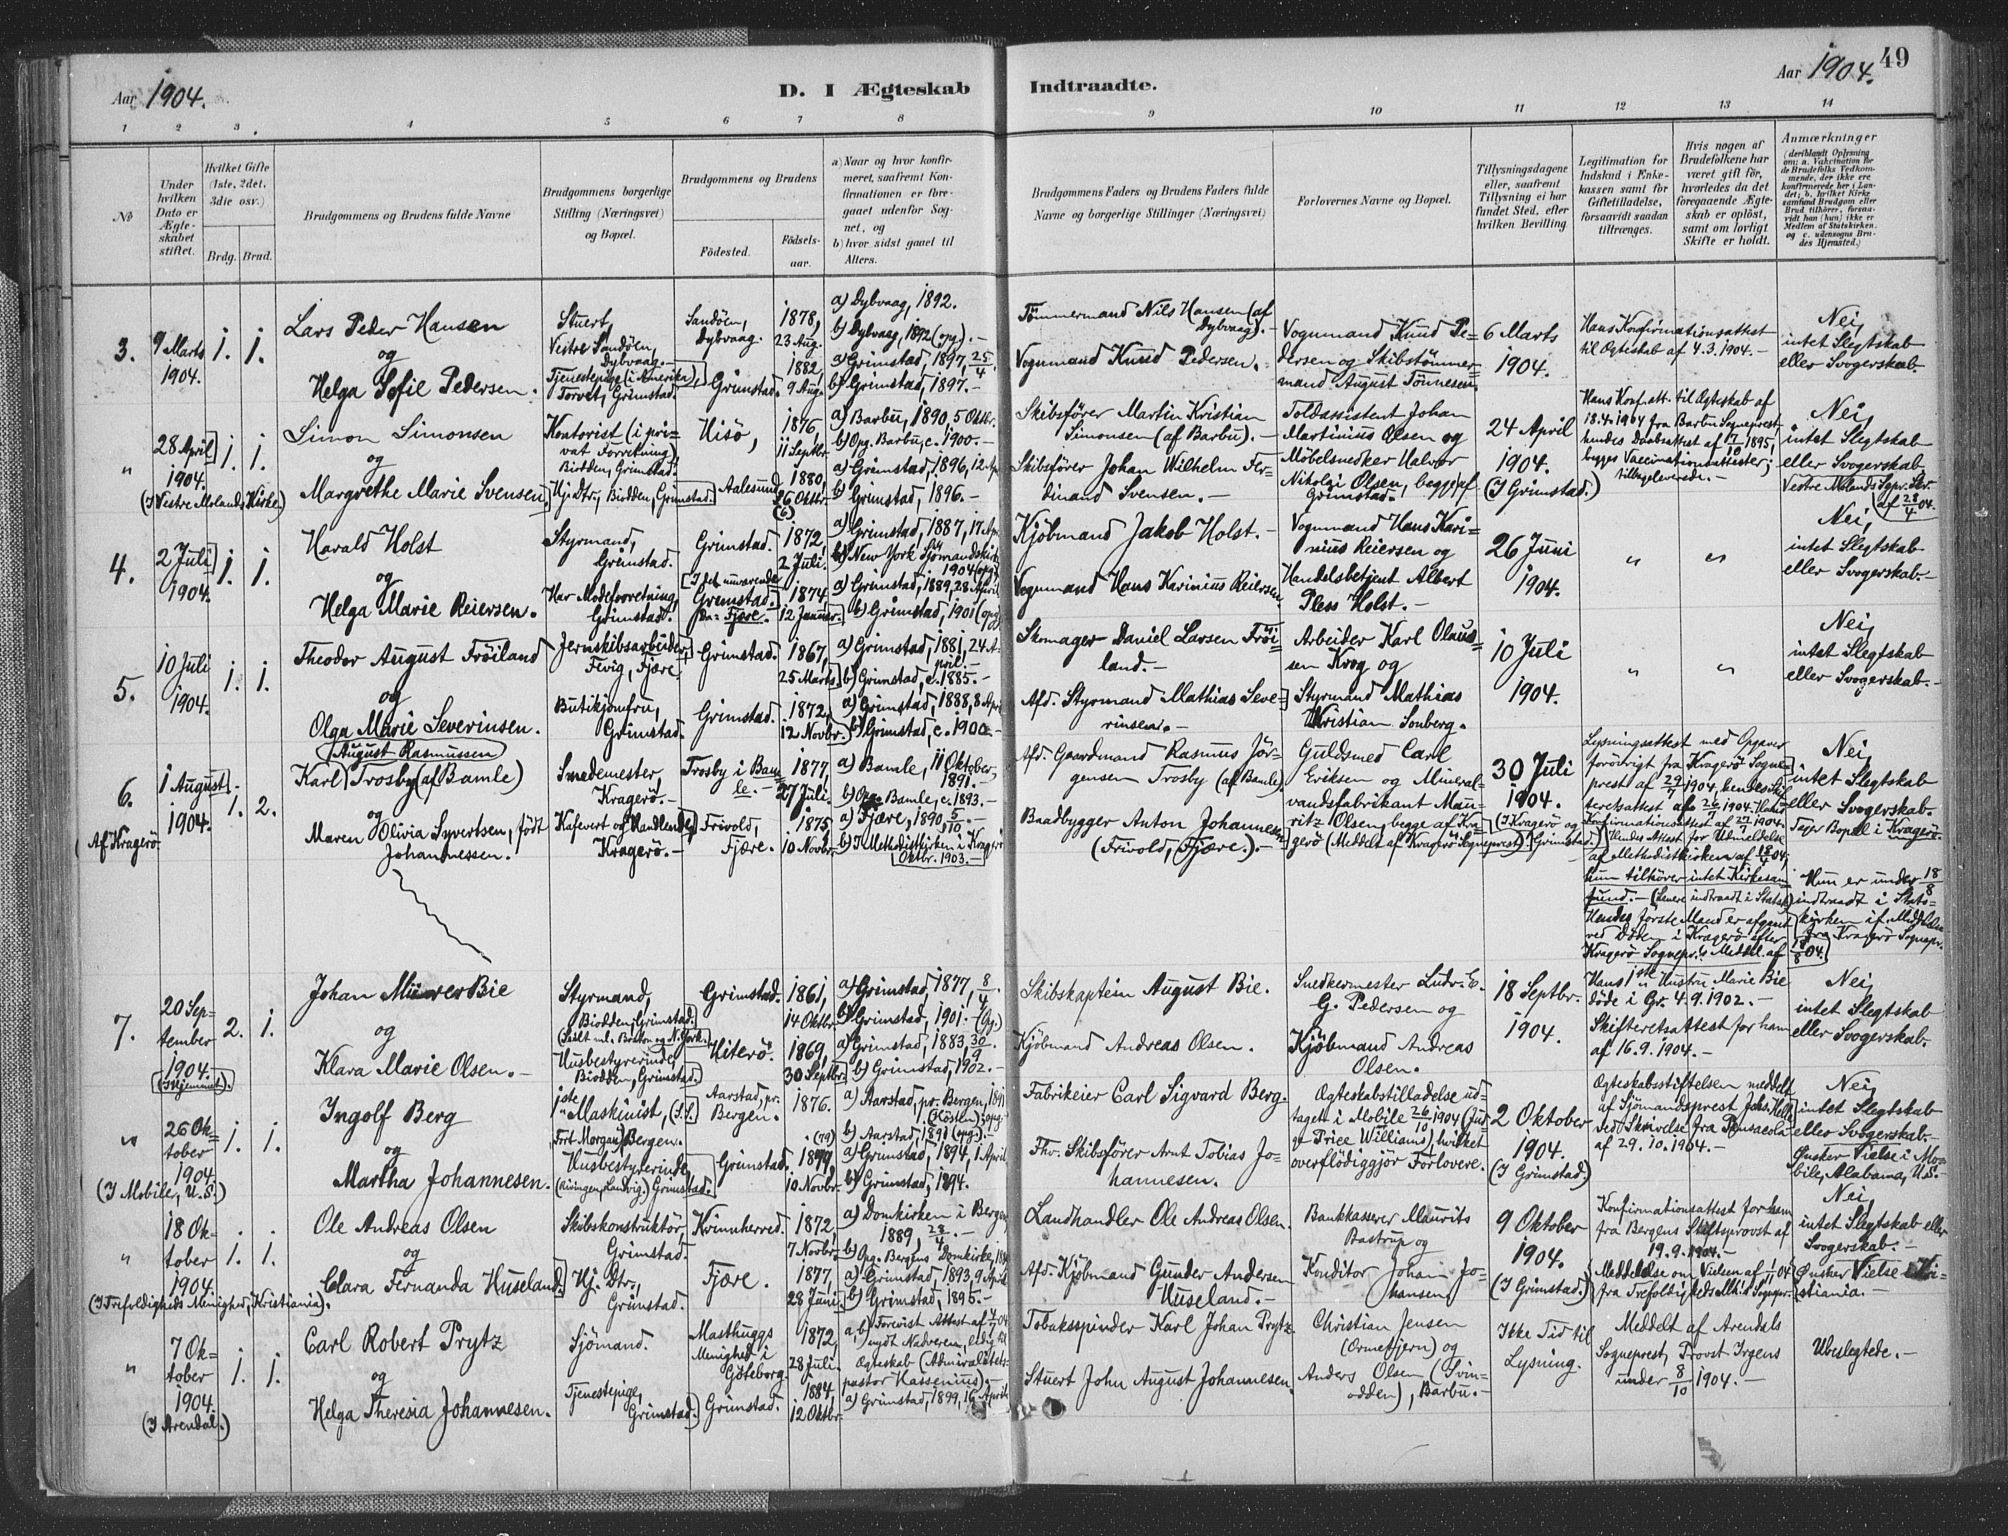 Aar 1904.
D. I Ægteskab
Indtraadte.
Aar 1904.
49
1
2
3
4
5
6
7
8
9
10
11
12
13
14
No
Under hvilken Dato er Ægteskabet stiftet.
Hvilket Gifte (1ste, 2det, 3die osv.)
Brdg.
Brud.
Brudgommens og Brudens fulde Navne
Brudgommens borgerlige Stilling (Næringsvei) og Bopæl.
Brudgommens og Brudens
Fødested.
Fødselsaar.
a) Naar og hvor konfirmeret, saafremt Konfirmationen er foregaaet udenfor Sognet, og
b) hvor sidst gaaet til Alters.
Brudgommens Faders og Brudens Faders fulde Navne og borgerlige Stillinger (Næringsvei)
Forlovernes Navne og Bopæl.
Tillysningsdagene eller, saafremt Tillysning ei har fundet Sted, efter hvilken Bevilling
Legitimation for Indskud i Enkekassen samt for Giftetilladelse, forsaavidt saadan tiltrænges.
Hvis nogen af Brudefolkene har været gift før, hvorledes da det foregaaende Ægteskab er opløst, samt om lovligt Skifte er holdt.
Anmærkninger
3.
9 Marts 1904.
1.
1.
Lars Peder Hansen
og
Helga Sofie Pedersen.
Stuert,
Vestre Sandöen,
Dybvaag.
Tjenestepige (i Amerika),
Torvet, Grimstad.
Sandöen, Dybvaag.
Grimstad.
1878, 23 Aug.
1882, 9 Aug.
a) Dybvaag, 1892.
b) Dybvaag, 1892 (opg). -
a) Grimstad, 1897, 25/4
b) Grimstad, 1897. -
Tömmermand Nils Hansen (af Dybvaag). -
Vognmand Knud Pedersen. -
Vognmand Knud Pedersen og Skibstömmermand August Tönnesen.
6 Marts 1904.
Hans Konfirmationsattest til Ægteskab af 4.3.1904. -
Nei, intet Slegtskab eller Svogerskab
"
28 April 1904.
(I Vestre Molands Kirke)
1.
1.
Simon Simonsen
og
Margrethe Marie Svensen.
Kontorist (i privat Forretning), Biodden, Grimstad.
Hj. Dtr., Biodden, Grimstad.
Hisö,
Aalesund
1876, 11 Septbr.
1880, 26 Oktbr. (6)
a) Barbu, 1890, 5 Oktbr.
b) Opg. Barbu, c. 1900. -
a) Grimstad, 1896, 12 Apr
b) Grimstad, 1896. -
Skibsförer Martin Kristian Simonsen (af Barbu). -
Skibsförer Johan Wilhelm Ferdinand Svensen. -
Toldassistent Johan Martinius Olsen og Möbelsnedker Halvor Nikolai Olsen, begge af Grimstad.
24 April 1904. (I Grimstad.)
Hans Konf.att. til Ægteskab af 18.4.1904 fra Barbu Sogneprest, hendes Daabsattest af 17/10 1895, begges Vaccinationsattester; tilbageleverede. -
Nei, intet Slegtskab eller Svogerskab
Vestre Molands Sgpr. Skr. af 28/4 04.
4.
2 Juli 1904.
1.
1.
Harald Holst
og
Helga Marie Reiersen.
Styrmand, Grimstad.
Har Modeforretning, Grimstad.
Grimstad.
I det nuværende Grimstad, fra Fjære.
1872, 2 Juli.
1874, 12 Januar.
a) Grimstad, 1887, 17 April
b) New York Sjömandskirke 1904 (opg)
a) Grimstad, 1889, 28 April
b) Grimstad, 1901 (opg)
Kjöbmand Jakob Holst. -
Vognmand Hans Karinius Reiersen.
Vognmand Hans Karinius Reiersen og Handelsbetjent Albert Pless Holst. -
26 Juni 1904.
"
"
Nei, intet Slegtskab eller Svogerskab. -
5.
10 Juli 1904.
1.
1.
Theodor August Fröiland
og
Olga Marie Severinsen.
Jernskibsarbeider, Fevig, Fjære.
Butikjomfru, Grimstad.
Grimstad.
Grimstad.
1867, 25 Marts.
1872, 12 Novbr.
a) Grimstad, 1881, 24 April. -
b) Grimstad, c. 1885. -
a) Grimstad, 1888, 8 Apr
b) Grimstad, c. 1900. -
Skomager Daniel Larsen Fröiland. -
Afd. Styrmand Mathias Severinsen. -
Arbeider Karl Olaussen Krog og Styrmand Mathias Kristian Sonberg.
10 Juli 1904.
"
"
Nei, intet Slegtskab eller Svogerskab. -
6.
Af Kragerö
1 August 1904.
1.
2.
August Rasmussen
Karl Trosby (af Bamle)
og
Maren Olivia Syvertsen, födt Johannessen.
Smedemester, Kragerö. -
Kafevert og Handlende, Kragerö. -
Trosby i Bamle. -
Frivold, Fjære.
1877, 27 Juli.
1875, 10 Novbr.
a) Bamle, 11 Oktober, 1891. -
b) Opg. Bamle, c. 1893. -
a) Fjære, 1890, 5/10
b) I Methodistkirken i Kragerö Oktbr. 1903. -
Afd. Gaardmand Rasmus Jörgensen Trosby (af Bamle).
Baadbygger Anton Johannesen (Frivold, Fjære.). -
Guldsmed Carl Eriksen og Mineralvandsfabrikant Mauritz Olsen, begge af Kragerö (Meddelt af Kragerö Sogneprest)
30 Juli 1904. (I Kragerö og Grimstad.)
Lysningsattest med Opgaver forövrigt fra Kragerö Sogneprest af 29/7 1904, hendes Skifteretsattest af 26/7 1904. Hans Konfirmationsattest af 27/7 1904. Hendes Attest for Udmeldelse af Methodistkirken af 18/7 04, hun tilhörer intet Kirkesamfund. - (Senere indtraadt i Statsk.)
Hendes förste Mand er afgaaet ved Döden i Kragerö efter Kragerö Sognepr.s Meddel. af
Nei, intet Slegtskab eller Svogerskab.
Tager Bopæl i Kragerö.
Hun er under 18/8 indtraadt i Statskirken if. Meddelelse fra Kragerö Sognepr. 18/8 04.
7.
20 September 1904.
(I Hjemmet).
2.
1.
Johan Bie
og
Klara Marie Olsen. -
Styrmand, Biodden, Grimstad. (Seilt ml. Boston og N. York.)
Husbestyrerinde, Biodden, Grimstad.
Grimstad.
Hiterö.
1861, 14 Oktbr.
1869, 30 Septbr.
a) Grimstad, 1877, 8/4
b) Grimstad, 1901. - (Opg.)
a) Grimstad, 1883, 30/9
b) Grimstad, 1902. -
Skibskaptein August Bie.
Kjöbmand Andreas Olsen.
Snedkermester Ludv. E. G. Pedersen og Kjöbmand Andreas Olsen.
18 Septbr. 1904.
Hans 1ste Hustru Marie Bie döde i Gr. 4.9.1902. -
Skifteretsattest for ham af 16.9.1904. -
Nei, intet Slegtskab eller Svogerskab.
"
26 Oktober 1904.
(I Mobile, U.S.)
1.
1.
Ingolf Berg
og
Martha Johannesen.
1ste Maskinist, (S.S. Fort Morgan) Bergen.
Husbestyrerinde, Grimstad.
Aarstad, pr. Bergen.
Grimstad.
1876.
(79) 10 Novbr.
a) Aarstad, pr. Bergen, 1891
b) Aarstad, 1891 (opg). -
a) Grimstad, 1894, 1 April
b) Grimstad, 1894.
Fabrikeier Carl Sigvard Berg.
Fhv. Skibsförer Arnt Tobias Johannesen.
Ægteskabstilladelse udtaget i Mobile 26/10 1904 (Judge Price Williams), hvilket overflödiggjör Forlovere.
2 Oktober 1904. (I Grimstad.)
Ægteskabsstiftelsen meddelt af Sjömandsprest ved Skrivelse fra Pensacola af 29.10.1904. -
Nei, intet Slegtskab eller Svogerskab. -
Önsker Vielse i Mobile, Alabama, U.S.
"
18 Oktober 1904.
(I Trefoldigheds Menighed, Kristiania).
1.
1.
Ole Andreas Olsen
og
Clara Fernanda Huseland.
Skibskonstruktör, Grimstad.
Hj. Dtr., Grimstad.
Kvinnherred.
Fjære.
1872, 7 Novbr.
1877, 28 Juni.
a) Domkirken i Bergen 1889, 28/4. -
b) Opg. Bergens Domkirke,
a) Grimstad, 1893, 9 April
b) Grimstad, 1895. -
Landhandler Ole Andreas Olsen.
Afd. Kjöbmand Gunder Andersen Huseland. -
Bankkasserer Maurits Bastrup og Konditor Johan Johansen
9 Oktober 1904. (I Grimstad.)
Konfirmationsattest for ham fra Bergens Stiftsprovst af 19.9.1904. -
Meddelelse om Vielsen af 1/11 04 fra Trefoldigheds Mhd. Sognepr.
Nei, intet Slegtskab eller Svogerskab. -
Önsker Vielse i Kristiania. -
"
7 Oktober 1904.
(I Arendal.)
1.
1.
Carl Robert Prytz
og
Helga Theresia Johannesen.
Sjömand.
Tjenestepige, Grimstad.
Masthuggs Menighed i Göteborg.
Grimstad.
1872, 28 Juli.
1884, 12 Oktbr.
a, b) Forevist Attest af nydt Nadveren, ledig til Ægteskab (Admiralitetspastor Hassenius). -
a) Grimstad, 1899, 16 April
Tobaksspinder Karl Johan Prytz
Stuert John August Johannesen.
Christian Jensen (Ormefjern) og Anders Olsen (Svinodden), Barbu. -
Ikke Tid til Lysning.
Meddelt af Arendals Sogneprest, Provst Irgens under 8/10 1904. -
Ubeslegtede. -